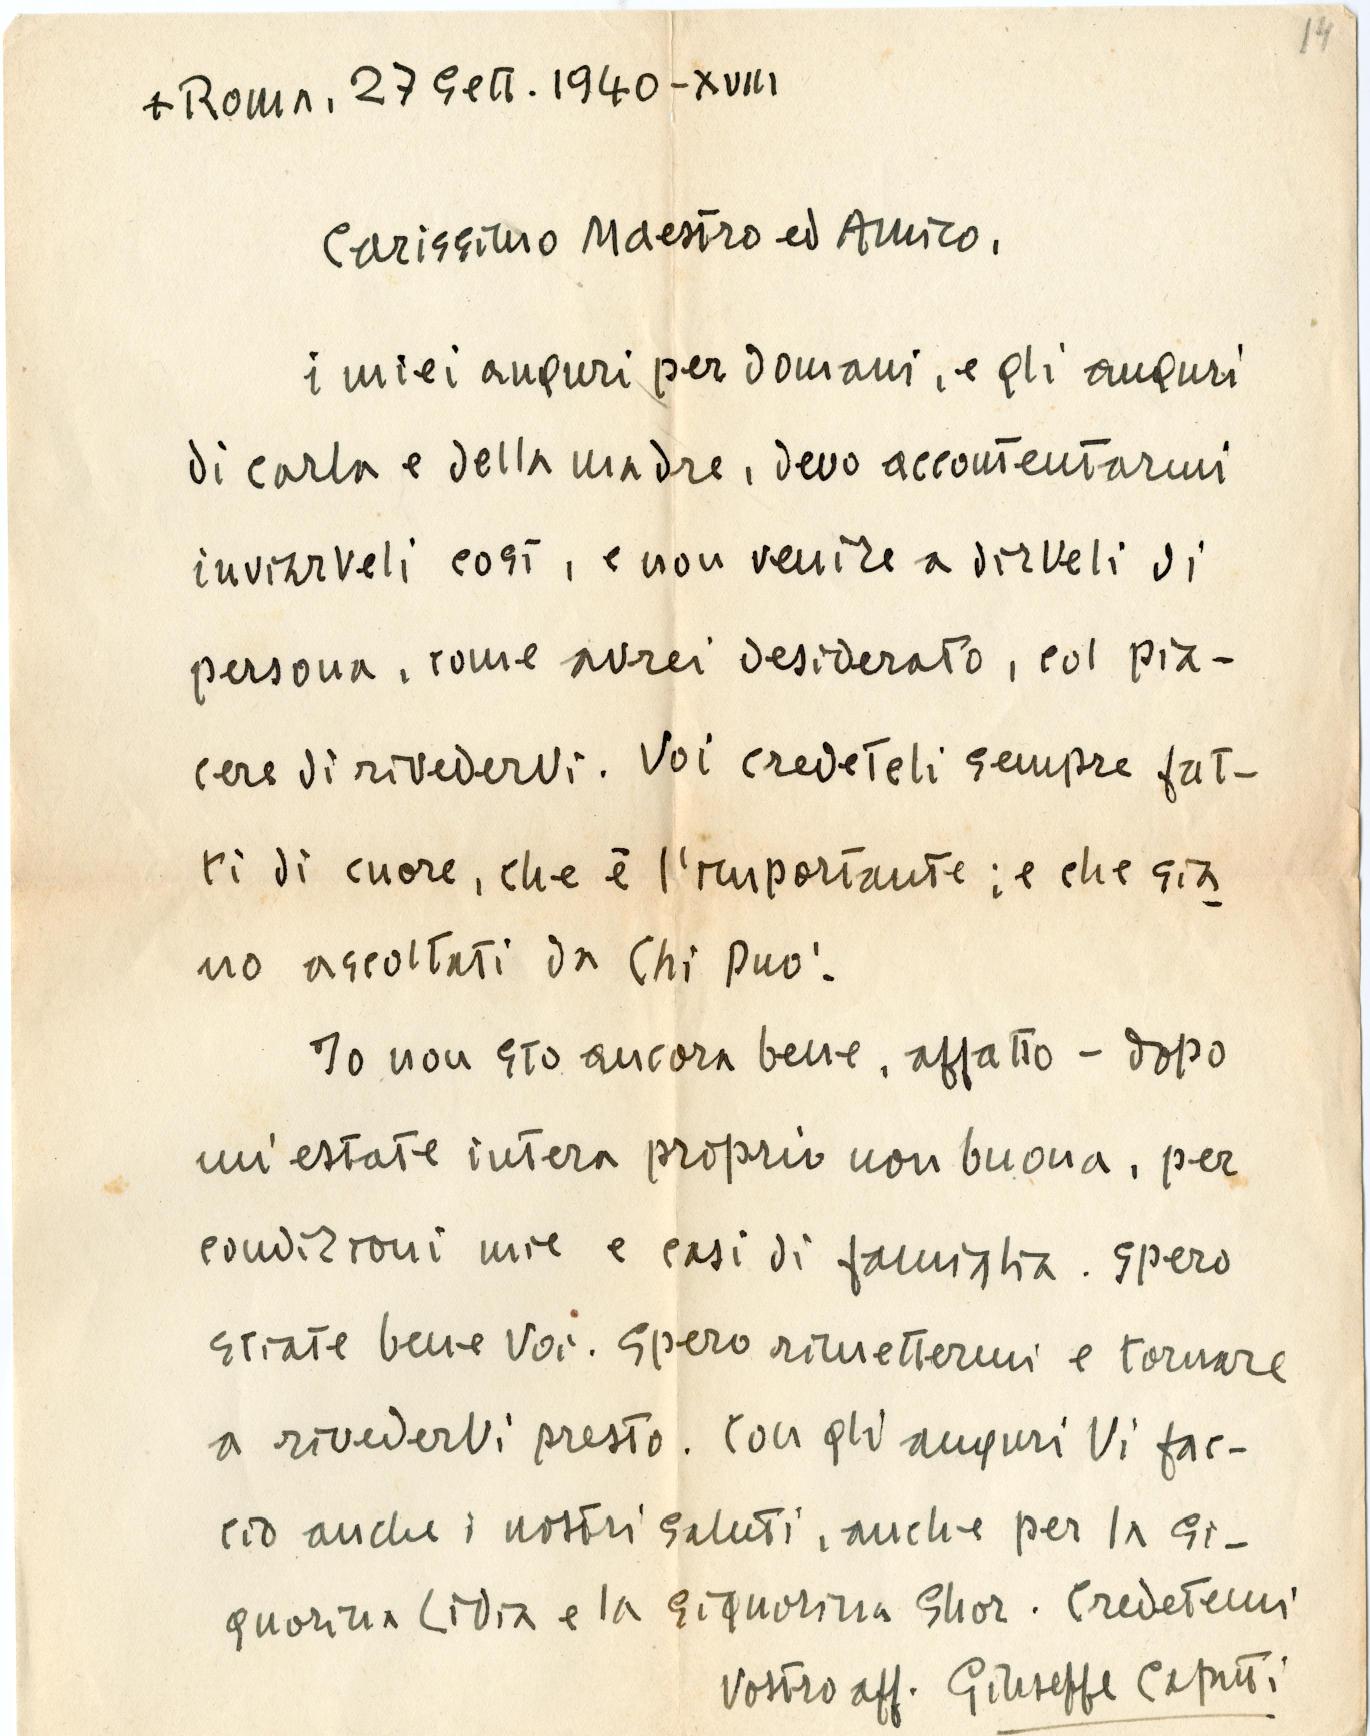 14
+ Roma, 27 Sett. 1940-XVIII
Carissimo Maestro ed Amico,
i miei auguri per domani, e gli auguri
di Carla e della madre, devo accontentarmi
inviarVeli così, e non venire a dirVeli di
persona, come avrei desiderato, col pia-
cere di rivederVi. Voi credeteli sempre fat-
ti di cuore, che è l'importante; e che sia
no ascoltati da Chi può.
Io non sto ancora bene, affatto - dopo
un'estate intera proprio non buona, per
condizioni mie e casi di famiglia. Spero
stiate bene Voi. Spero rimettermi e tornare
a rivederVi presto. Con gli auguri Vi fac-
cio anche i nostri saluti, anche per la Si-
gnorina Lidia e la Signorina Shor. Credetemi
Vostro aff. Giuseppe Caputi